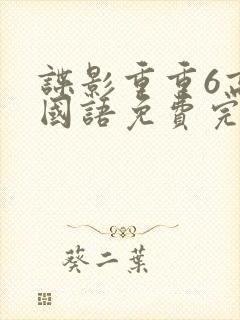 諜影重重6高
國語免費完
葵二葉